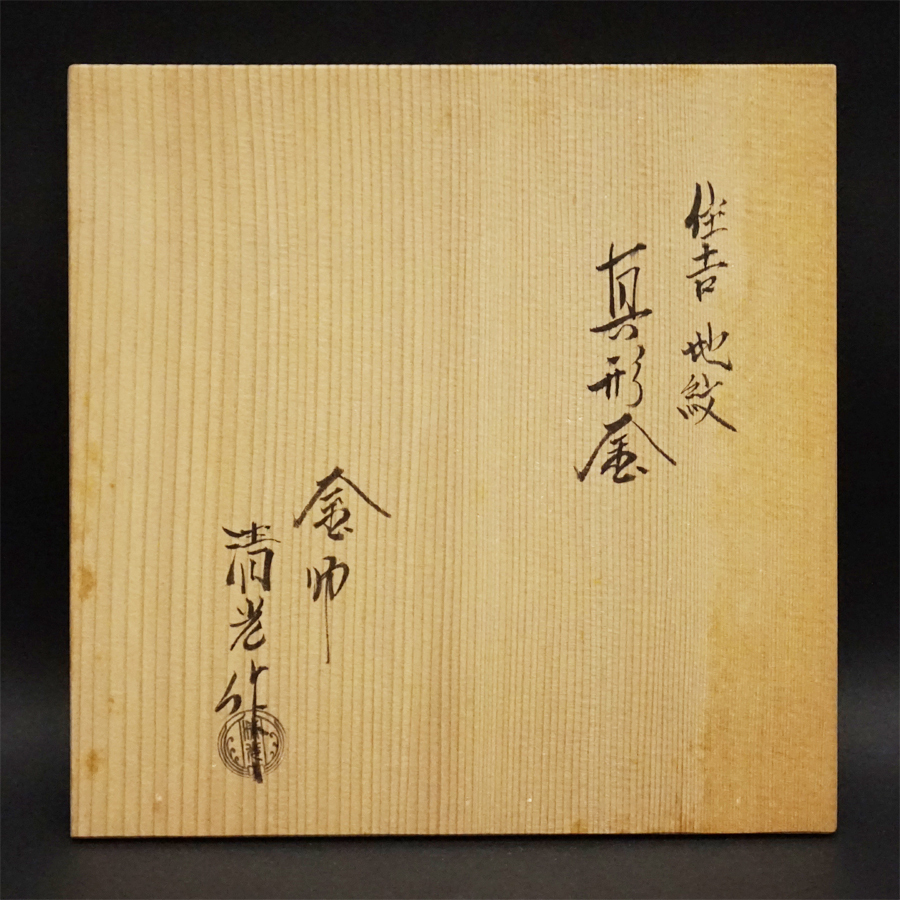 住吉地紋
真形釜
釜師
清光作